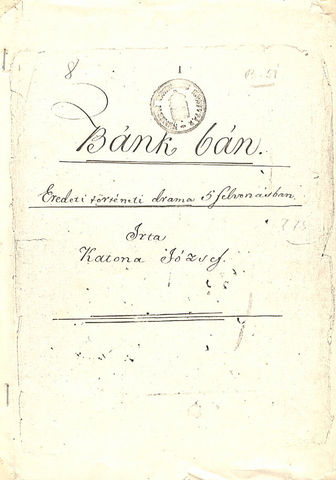 8
1
Bánk bán.
Eredeti történeti dráma 5 felvonásban
Irta
Katona József.